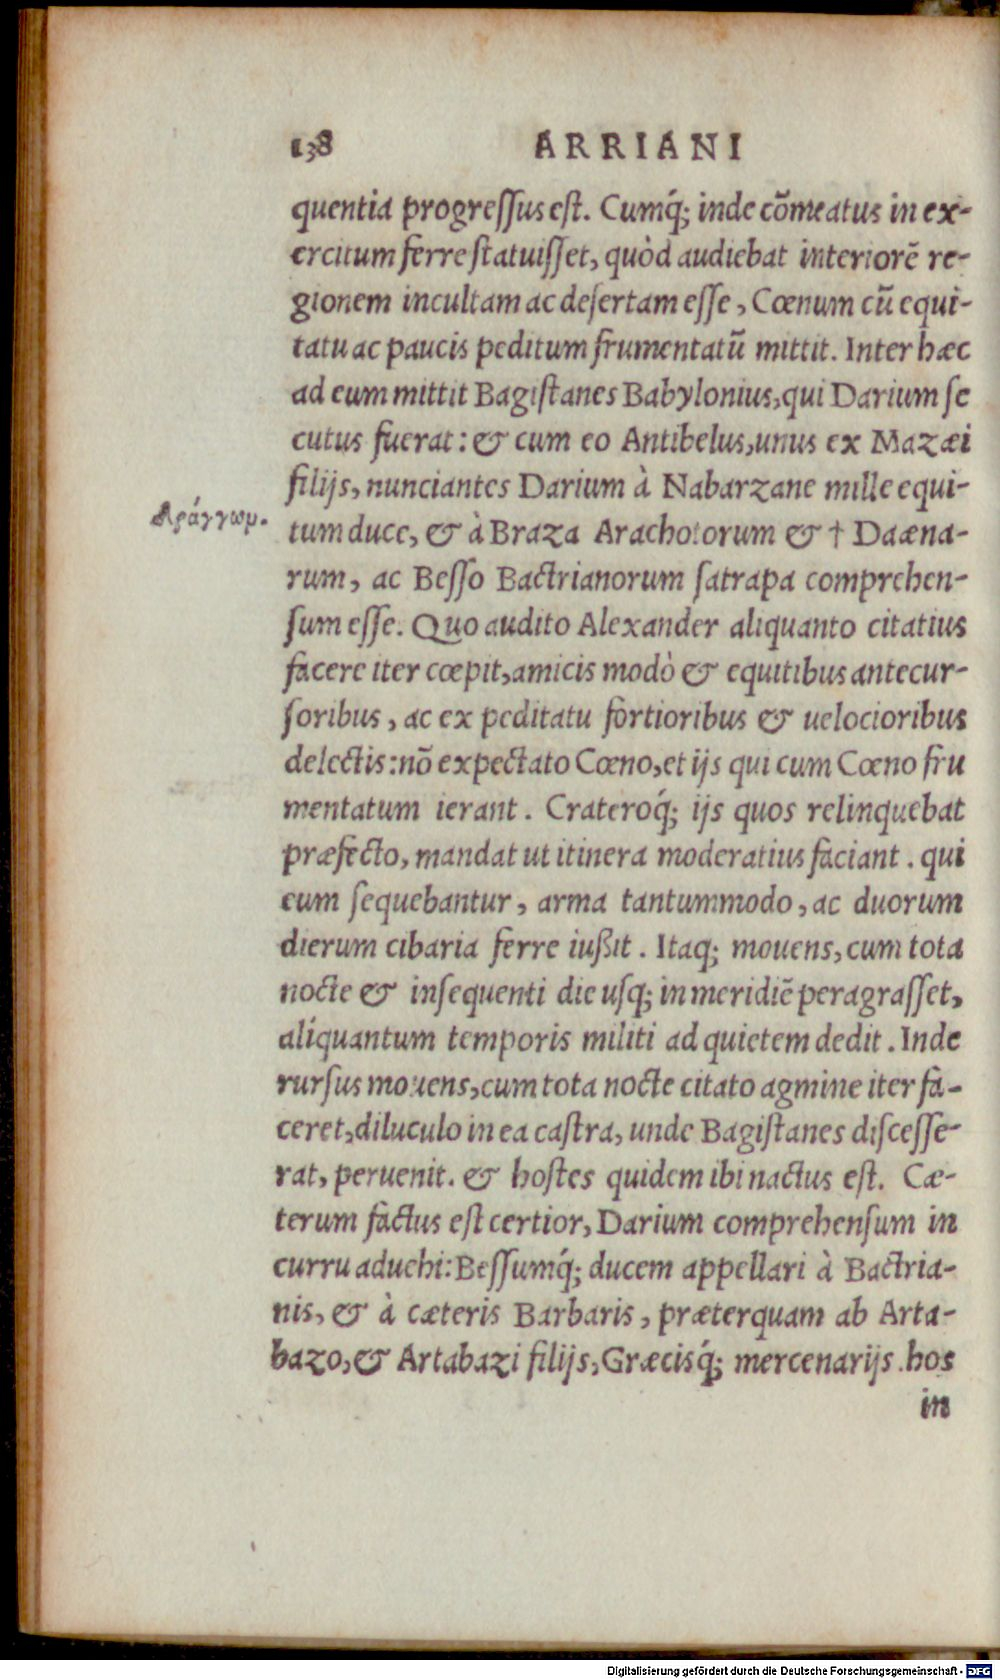 138 ARRIANI
quentia progressus est. Cumq́; inde cõmeatus in ex-
ercitum ferre statuisset, quòd audiebat interiorẽ re-
gionem incultam ac desertam esse, Cœnum cũ equi-
tatu ac paucis peditum frumentatũ mittit. Inter hæc
ad eum mittit Bagistanes Babylonius, qui Darium se
cutus fuerat: & cum eo Antibelus, unus ex Mazæi
filijs, nunciantes Darium à Nabarzane mille equi-
tum duce, & à Braza Arachotorum & † Daæna-
rum, ac Besso Bactrianorum satrapa comprehen-
sum esse. Quo audito Alexander aliquanto citatius
facere iter cœpit, amicis modò & equitibus antecur-
soribus, ac ex peditatu fortioribus & uelocioribus
delectis: nõ expectato Cœno, et ijs qui cum Cœno fru
mentatum ierant. Crateroq́; ijs quos relinquebat
præfecto, mandat ut itinera moderatius faciant. qui
eum sequebantur, arma tantummodo, ac duorum
dierum cibaria ferre iußit. Itaq; mouens, cum tota
nocte & insequenti die usq; in meridiẽ peragrasset,
alíquantum temporis militi ad quietem dedit. Inde
rursus mouens, cum tota nocte citato agmine iter fa-
ceret, diluculo in ea castra, unde Bagistanes discesse-
rat, peruenit. & hostes quidem ibi nactus est. Cæ-
terum factus est certior, Darium comprehensum in
curru aduehi: Bessumq́; ducem appellari à Bactria-
nis, & à cæteris Barbaris, præterquam ab Arta-
bazo, & Artabazi filijs, Græcisq́; mercenarijs. hos
in
Digitalisierung gefördert durch die Deutsche Forschungsgemeinschaft - DFG